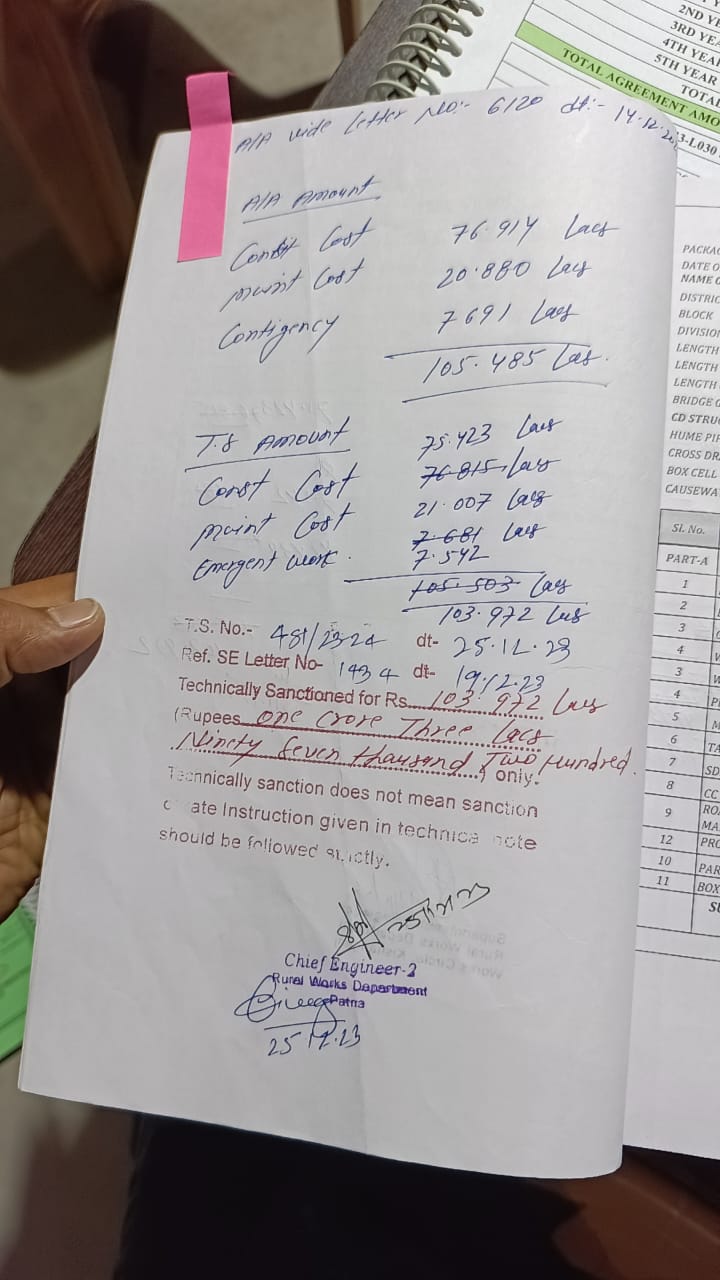 2ND YE
3RD YE
4TH YEAR
5TH YEAR
TOTA
TOTAL AGREEMENT AMO
3-L030
A/A vide Letter No:- 6120 dt:- 14.12.20
A/A Amount
Constt Cost 76.914 Lacs
maint Cost 20.880 Lacs
Contigency 7691 Lacs
105.485 Lac.
T.S Amount 75.423 Lacs
Const Cost 76.815 Lacs
maint Cost 21.007 Lacs
Emergent Work. 7.681 Lacs
7.542
105.503 Lacs
103.972 Lacs
T.S. No.- 481/23-24 dt- 25.12.23
Ref. SE Letter No- 1434 dt- 19.12.23
Technically Sanctioned for Rs. 103.972 Lacs
(Rupees one Crore Three Lacs
Ninety Seven thousand Two Hundred.
) only.
Technically sanction does not mean sanction
ate Instruction given in technica note
should be followed strictly.
25/12/23
Chief Engineer-2
Rural Works Department
Patna
25.12.23
PACKAG
DATE O
NAME O
DISTRIC
BLOCK
DIVISION
LENGTH
LENGTH
LENGTH
BRIDGE
CD STRU
HUME PIP
CROSS DR
BOX CELL
CAUSEWA
Sl. No.
PART-A
1
2
3
4 W
3 W
4 PI
5 M
6 TA
7 SD
8 CC
9 RO
MA
12 PRO
10 PAR
11 BOX
SU